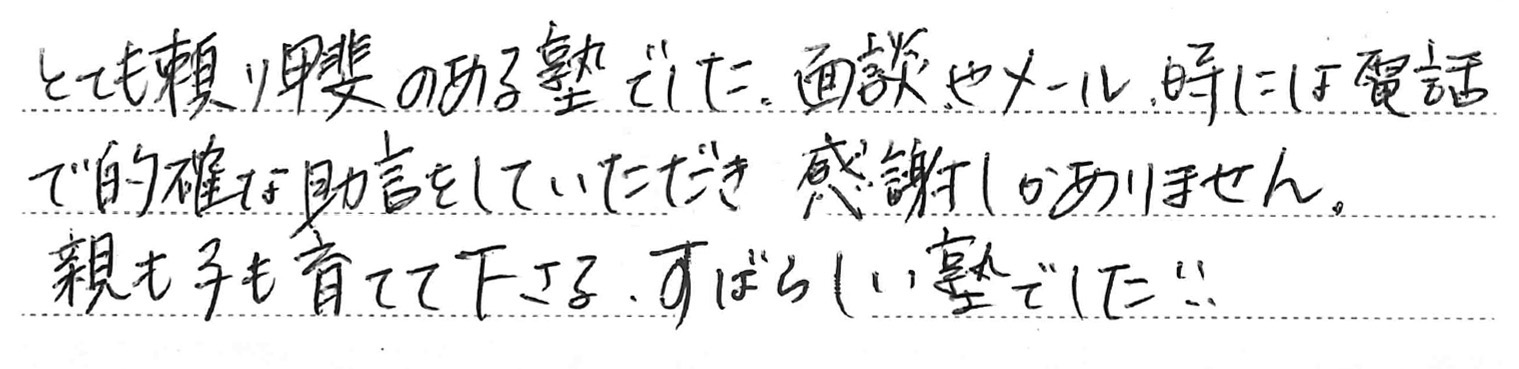 とても頼り甲斐のある塾でした。面談やメール、時には電話
で的確な助言をしていただき 感謝しかありません。
親も子も育てて下さる、すばらしい塾でした!!